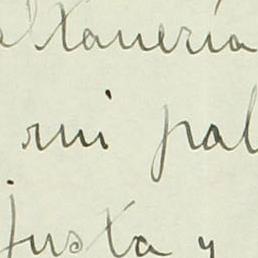 altanería
mi pal
justa y